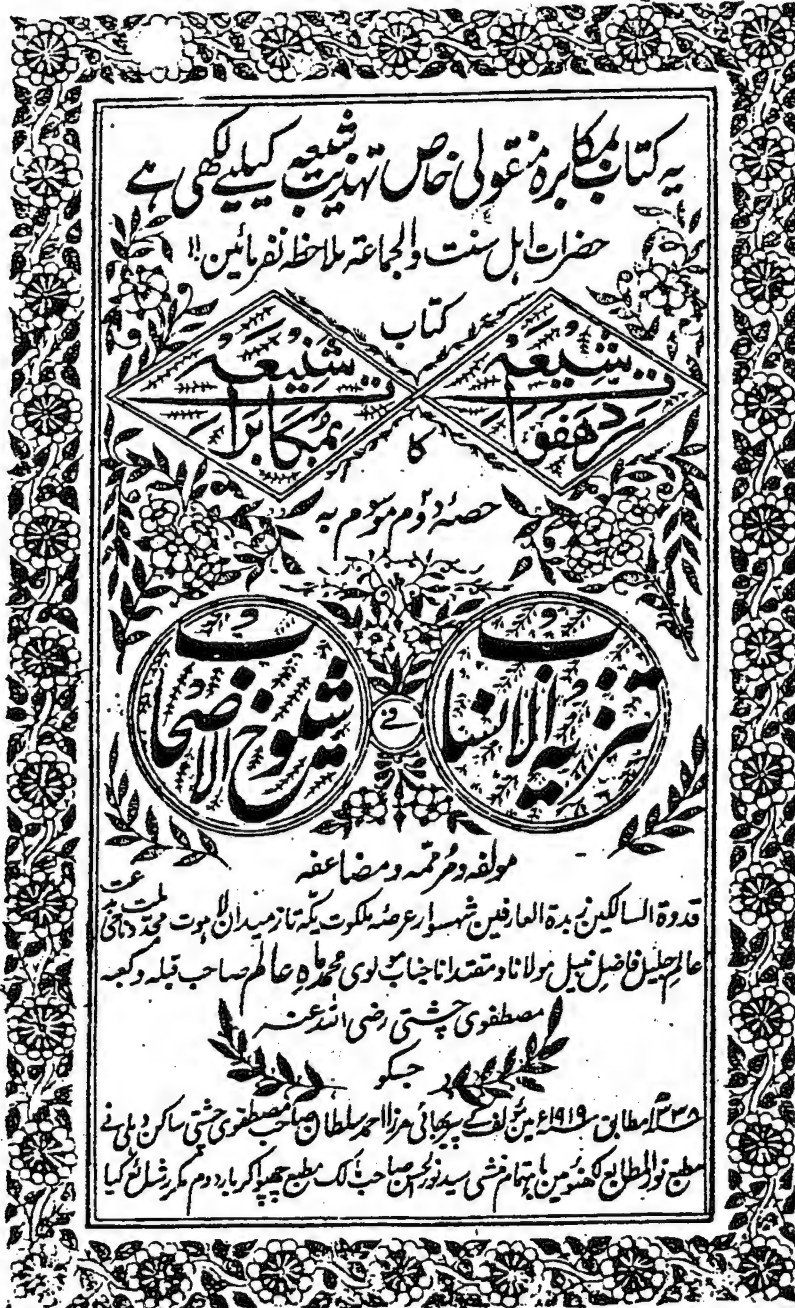 یہ کتاب بمکابرہ منقولی خاص تہذیب شیعہ کیلیے لکھی ہے
حضرات اہل سنت والجماعۃ ملاحظہ نفرمائین!!
کتاب
رد ھفوات شیعہ
بمکابرات شنیعہ
کا
حصۂ دوم موسوم بہ
تنزیہ الانساب
فے
شیوخ الاصحاب
مولفہ و مرممہ و مضاعفہ
قدوۃ السالکین زبدۃ العارفین شہسوار عرصۂ ملکوت یکہ تاز میدان لاہوت مجدد
عالم جلیل فاضل نبیل مولانا و مقتدانا جناب مولوی محمد ماہ عالم صاحب قبلہ و کعبہ
مصطفوی چشتی رضی اللہ عنہ
جسکو
۱۳۳۸ مطابق سنہ ۱۹۱۹ء مین مؤلف کے پیر بھائی مرزا احمد سلطان صاحب مصطفوی چشتی ساکن دہلی نے
مطبع نور المطابع لکھنو مین باہتمام منشی سید نور الحسن صاحب مالک مطبع چھپوا کر بار دوم مکرر شائع کیا